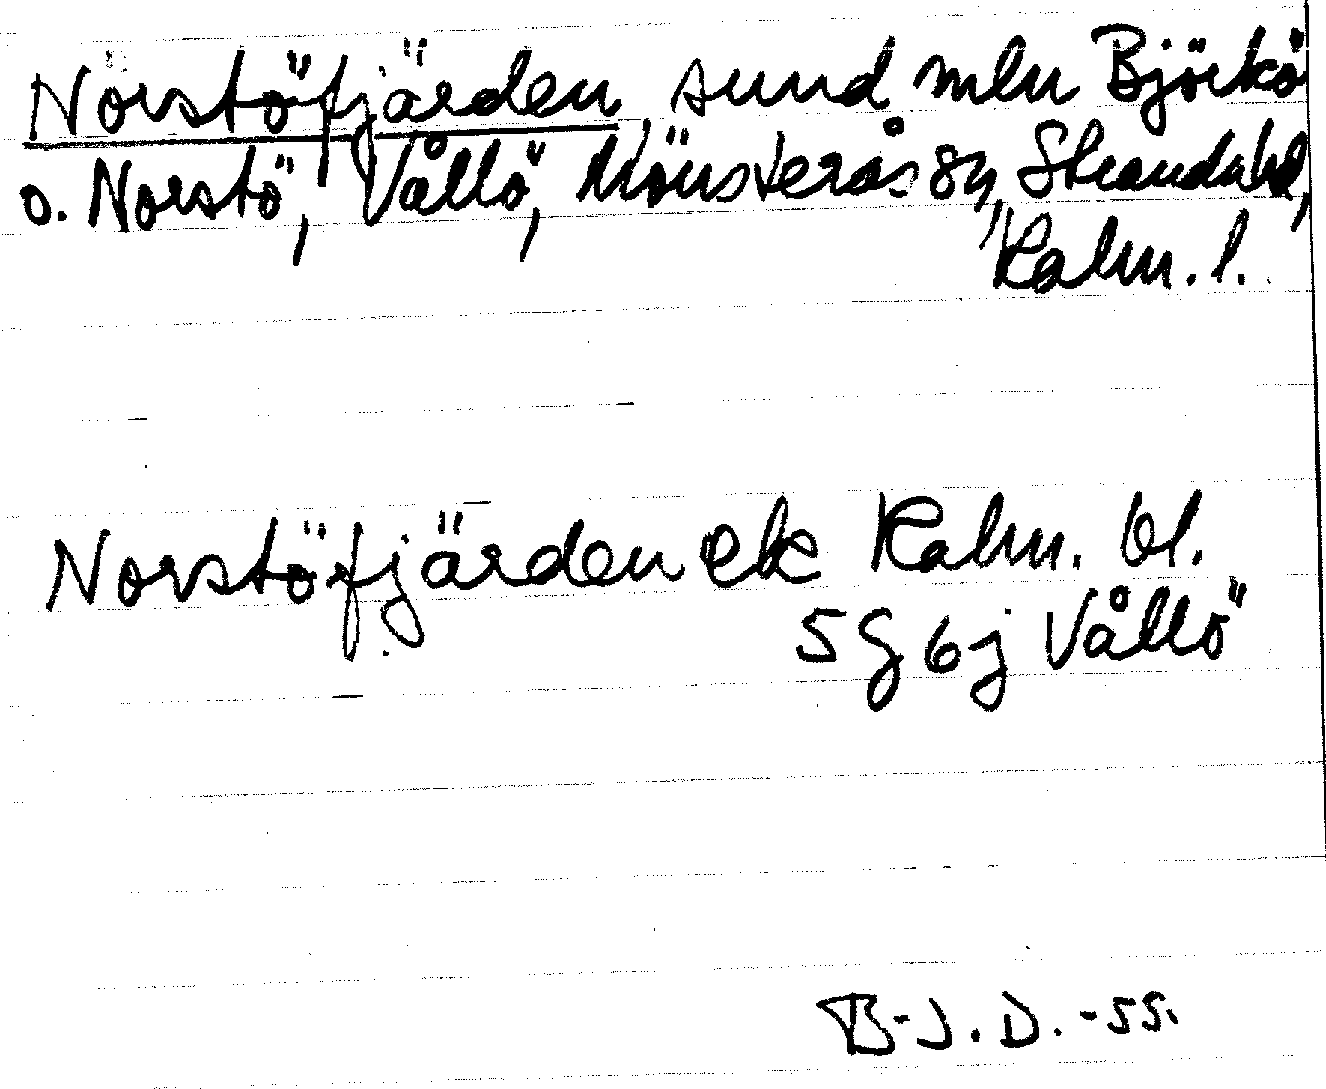 Norstöfjärden, sund mln Björkö
o. Norstö, Vållö, Mönsterås sn, Stranda hd,
Kalm. l.
Norstöfjärden ek Kalm. bl.
5G6j Vållö
B-J.D.-55.